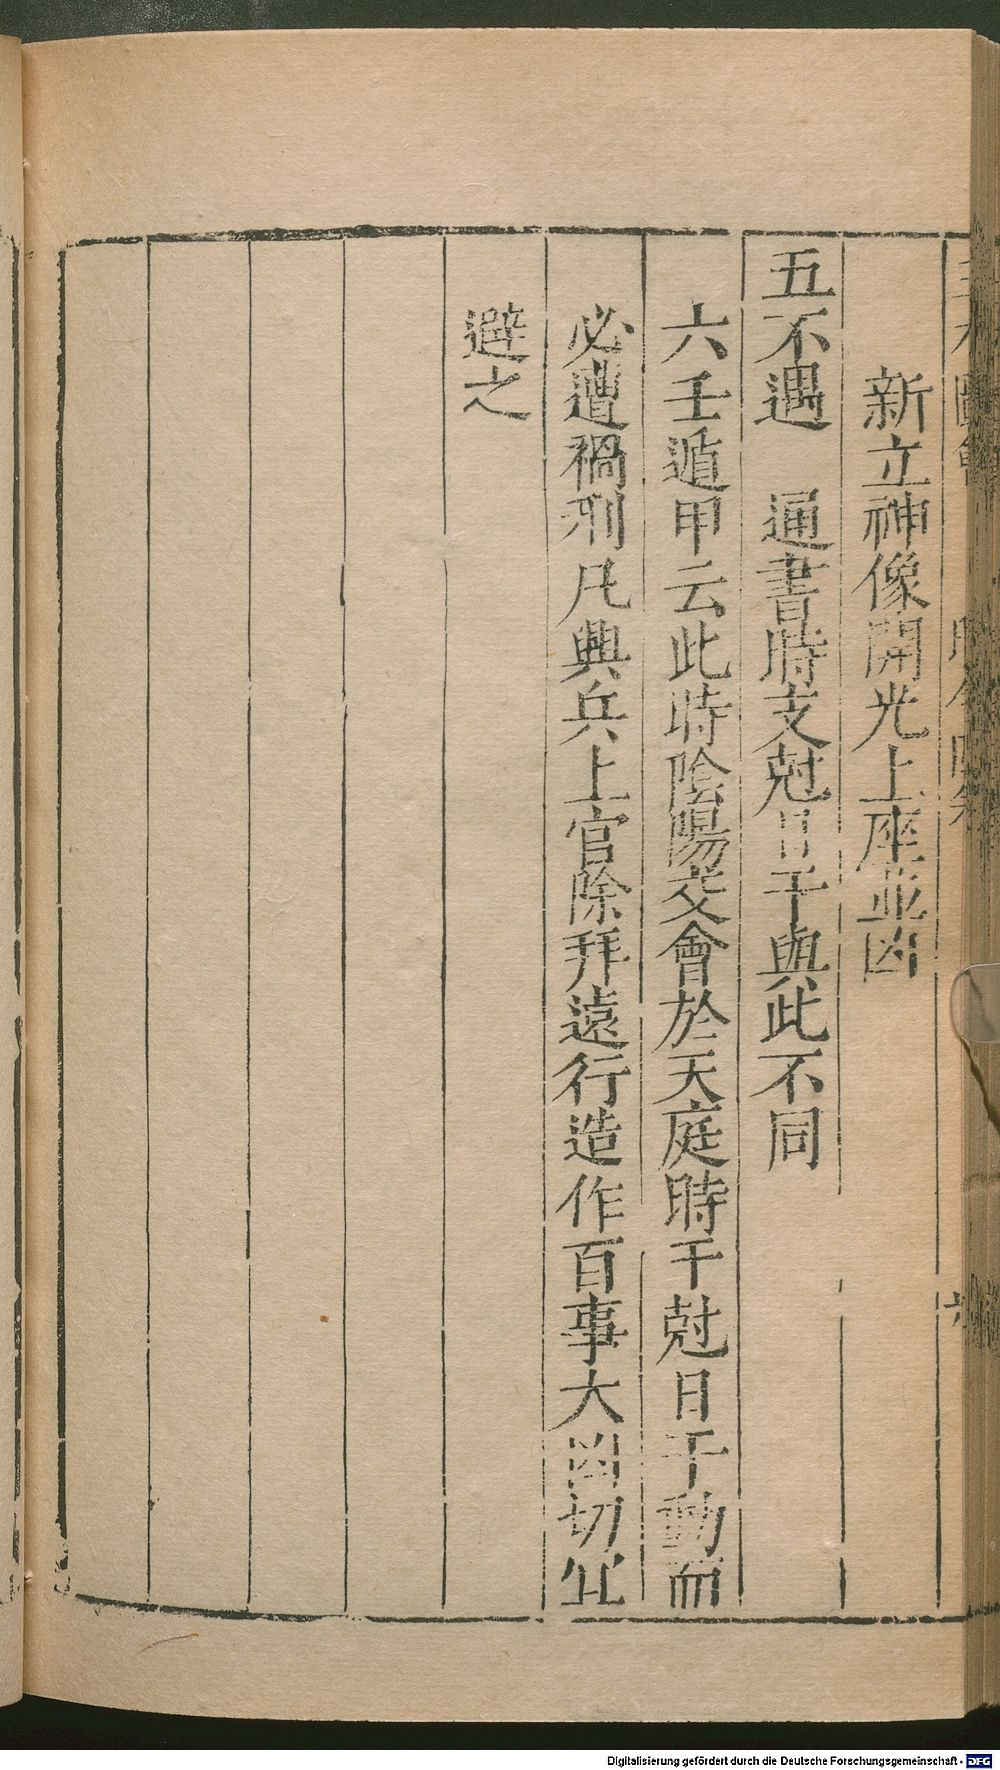 新立神像開光上座並凶
五不遇　通書時支尅日干與此不同
六壬遁甲云此時陰陽交會於天庭時干尅日干動而
必遭禍刑凡興兵上官除拜遠行造作百事大凶切宜
避之
Digitalisierung gefördert durch die Deutsche Forschungsgemeinschaft - DFG